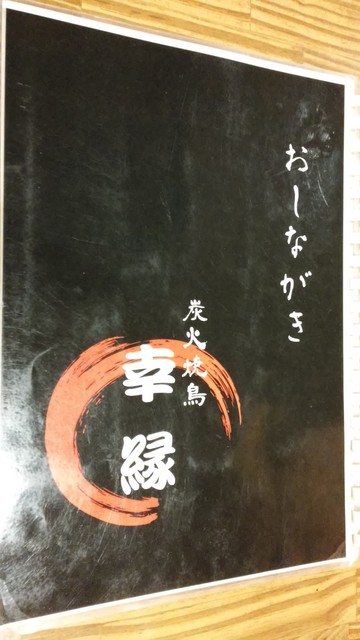 おしながき
炭火焼鳥
幸縁